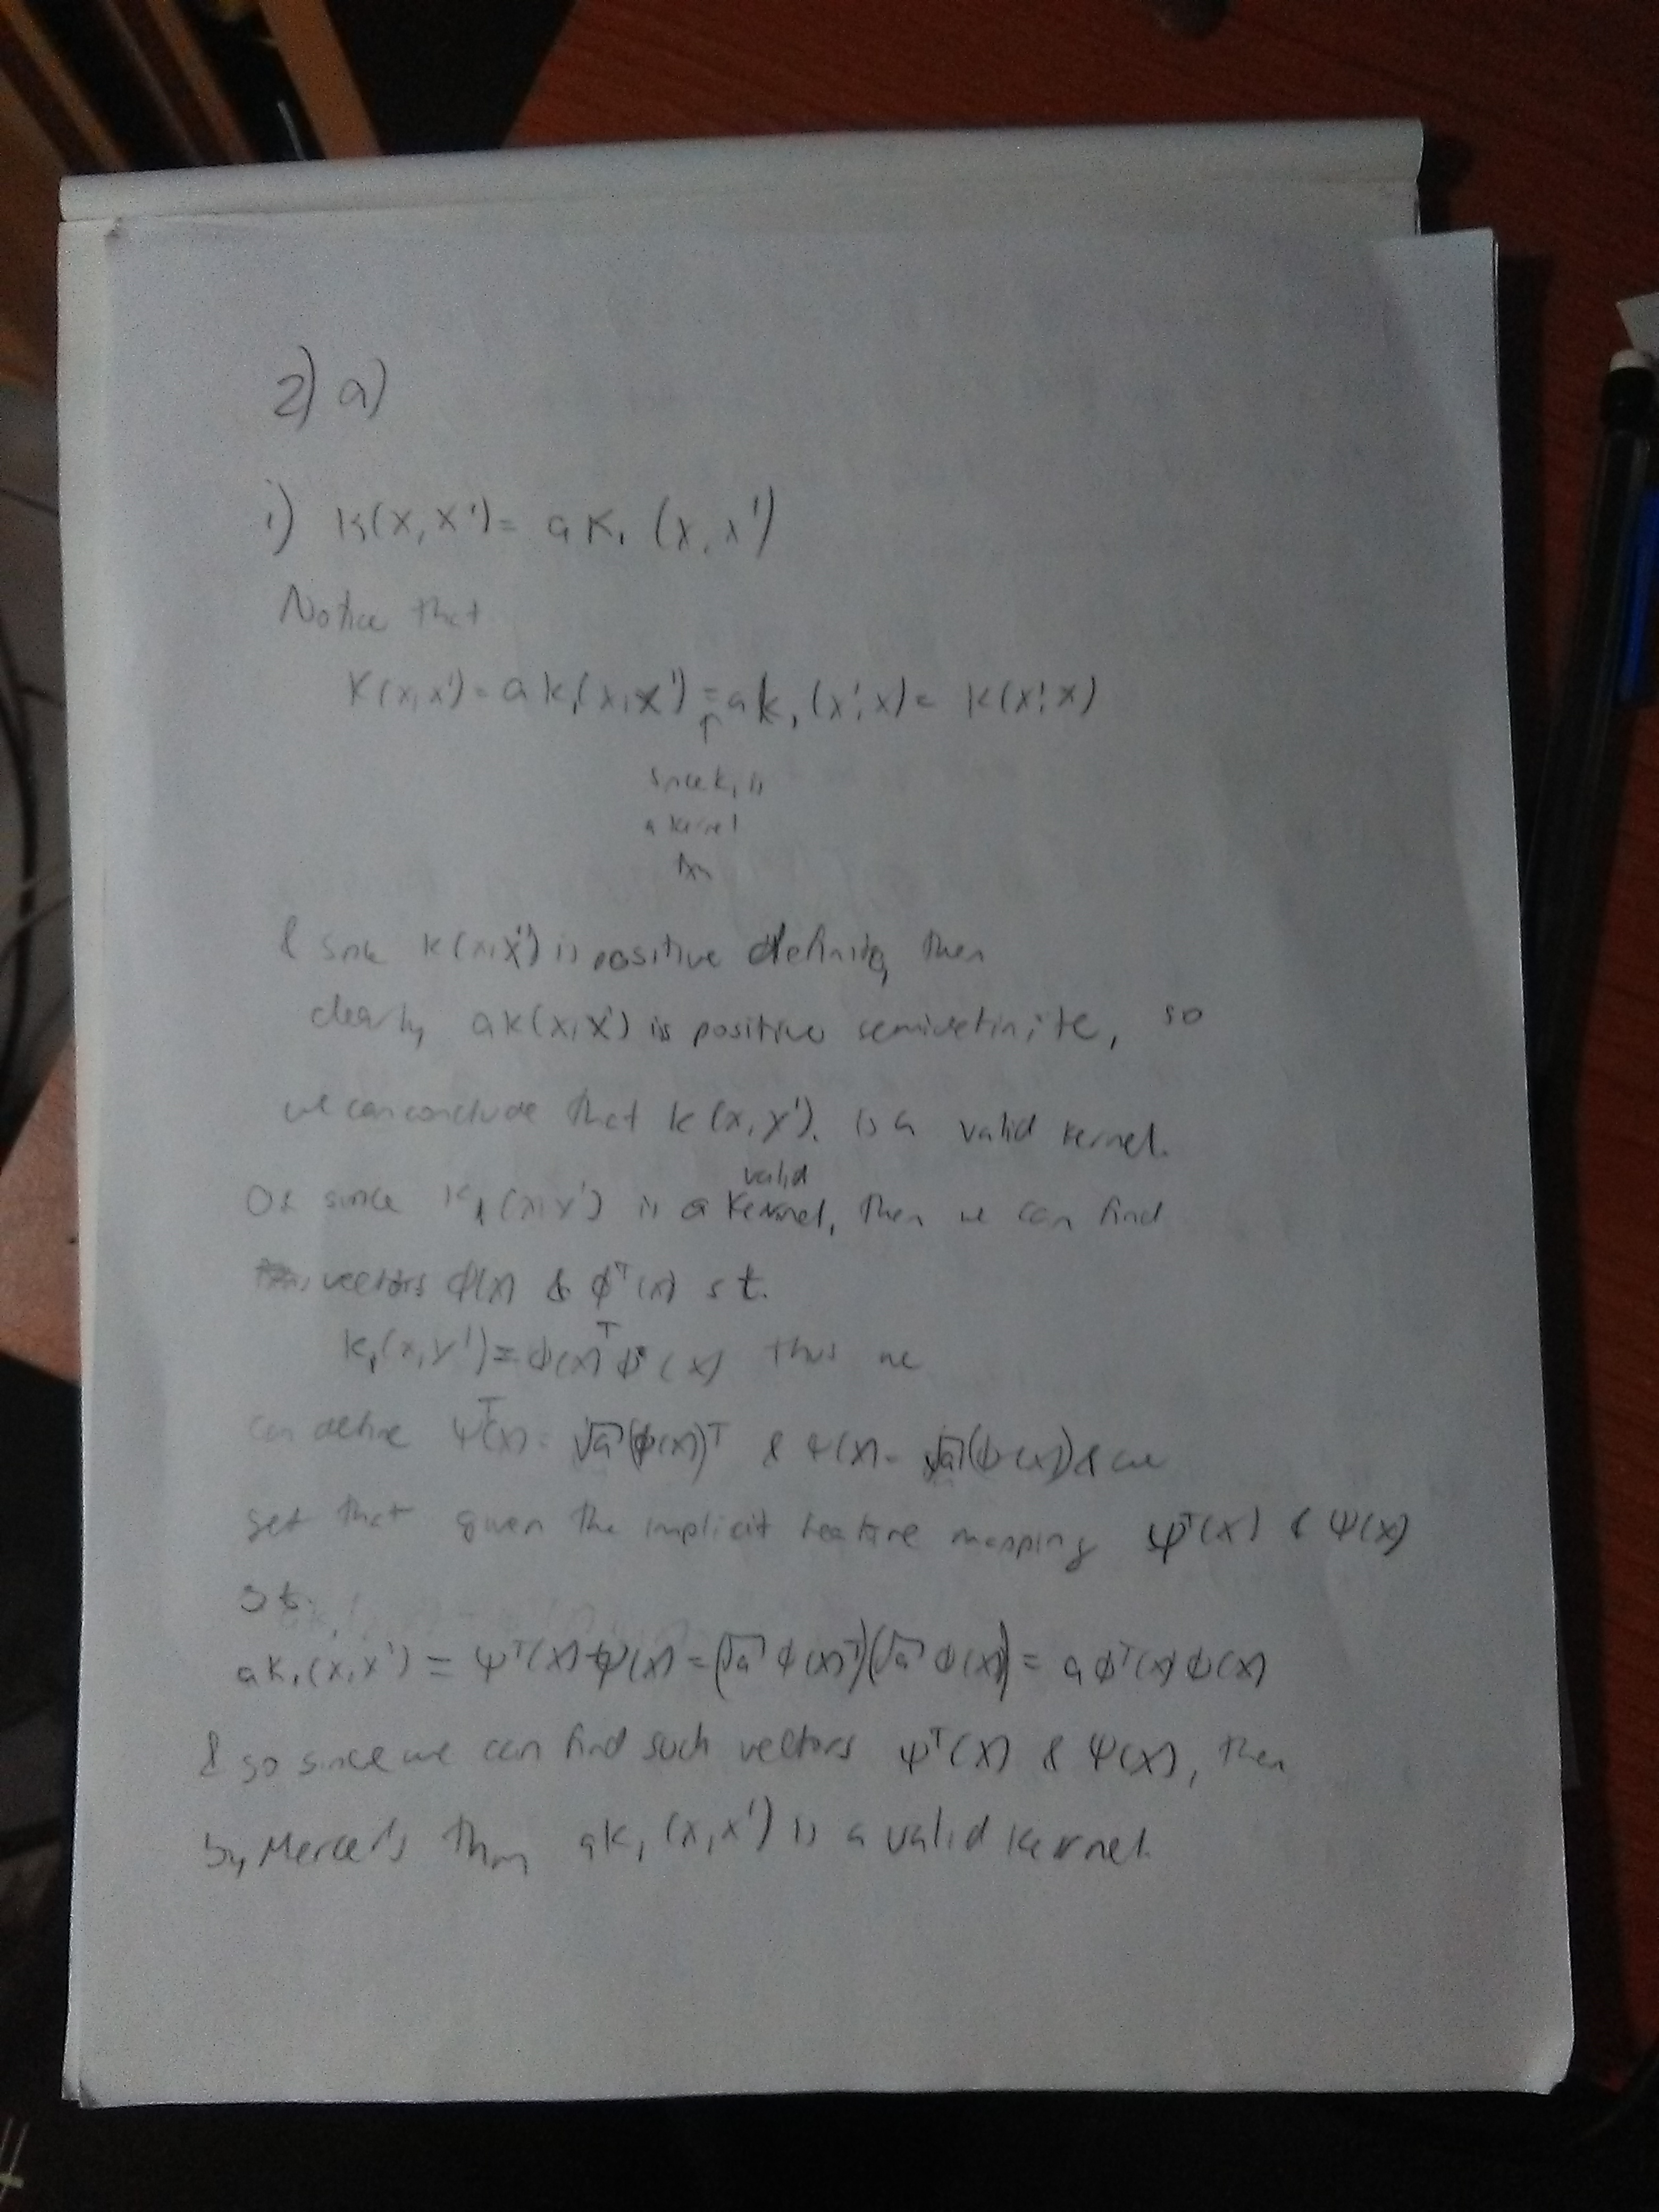 2) a)
i) K(x, x') = a K₁ (x, x')
Notice that
K(x,x') = a k₁(x,x') = a k₁ (x', x) = K(x', x)
↑
since k₁ is
a kernel
fxn
& since k(x,x') is positive definite, then
clearly ak(x,x') is positive semidefinite, so
we can conclude that k(x,x'). is a valid kernel.
valid
Or since K₁(x,x') is a Kernel, then we can find
vectors φ(x) & φᵀ(x) s t.
k₁(x,x') = φ(x)ᵀ φ(x) thus we
can define Ψᵀ(x) = √a (φ(x))ᵀ & Ψ(x) = √a (φ(x)) & we
get that given the implicit feature mapping Ψᵀ(x) & Ψ(x)
s t.
ak₁(x,x') = Ψᵀ(x) Ψ(x) = (√a φ(x)ᵀ)(√a φ(x)) = a φᵀ(x) φ(x)
& so since we can find such vectors Ψᵀ(x) & Ψ(x), then
by Mercer's thm ak₁(x,x') is a valid kernel.